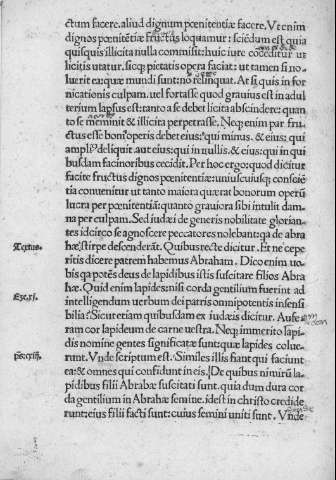 ctum facere. aliud dignum pœnitentiæ facere. Vt enim
dignos pœnitētiæ fructus loquamur: sciēdum est quia
quisquis illicita nulla commisit: huic iure cōceditur ut
licitis utatur. sicq; pietatis opera faciat: ut tamen si no-
luerit ea: quæ mundi sunt: nō relinquat. At si quis in for
nicationis culpam. uel fortasse quod grauius est in adul
terium lapsus est: tanto a se debet licita abscindere: quan
to se meminit & illicita perpetrasse. Neq; enim par fru-
ctus esse boni operis debet eius: qui minus. & eius: qui
ampliꝰ deliquit. aut eius: qui in nullis. & eius: qui in qui
busdam facinoribus cecidit. Per hoc ergo: quod dicitur
facite fructus dignos pœnitentiæ: uniuscuiusq; consciē
tia conuenitur ut tanto maiora quærat bonorum operū
lucra per pœnitentiā: quanto grauiora sibi intulit dam-
na per culpam. Sed iudæi de generis nobilitate glorian-
tes idcirco se agnoscere peccatores nolebant: q̄a de abra
Textus. hæ stirpe descenderāt. Quibus recte dicitur. Et ne cepe
ritis dicere patrem habemus Abraham. Dico enim uo-
bis q̄a potēs deus de lapidibus istis suscitare filios Abra
hæ. Quid enim lapides: nisi corda gentilium fuerint ad
Eze.xi. intelligendum uerbum dei patris omnipotentis insensi
bilia? Sicut etiam quibusdam ex iudæis dicitur. Aufe
ram cor lapideum de carne uestra. Neq; immerito lapi-
dis nomine gentes significatæ sunt: quæ lapides colue-
ps.cxiij. runt. Vnde scriptum est. Similes illis fiant qui faciunt
ea: & omnes qui confidunt in eis. De quibus nimirū la
pidibus filii Abrahæ suscitati sunt. quia dum dura cor
da gentilium in Abrahæ semine. idest in christo credide
runt: eius filii facti sunt: cuius semini uniti sunt. Vnde